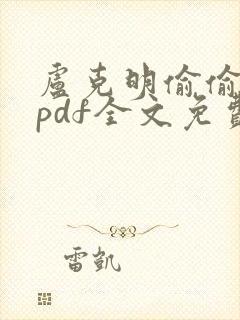 盧克明偷偷
pdf全文免費
雷凱